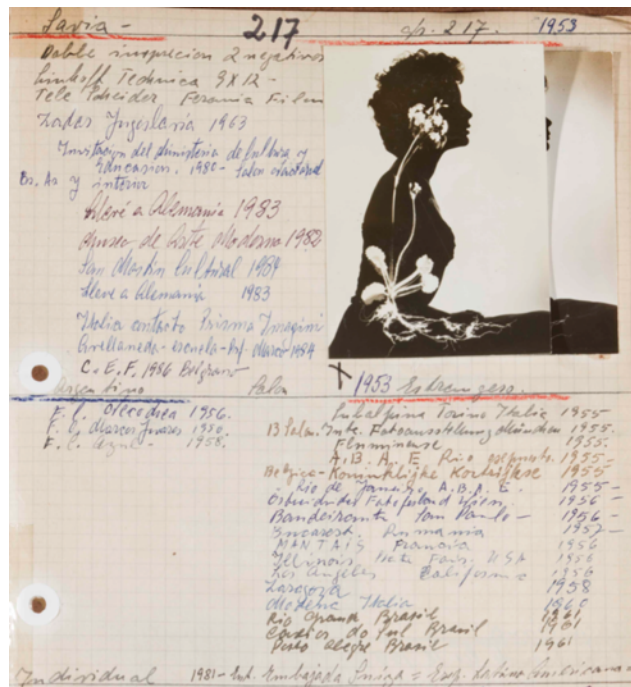 Savia -
217
cp. 217. 1953
Doble inspeccion 2 negativos
Linhoff Technica 9x12 -
Tele Ferrania Film
Zadar Jugoslavia 1963
Invitacion del Ministerio de Cultura y
Educacion. 1980 - Salon
Bs. As y interior
Llevé a Alemania 1983
Museo de Arte Moderno 1982
San Martin Cultural 1984
Lleve a Alemania 1983
Italia contacto Prisma Imagini
Avellaneda - escuela - 1984
C. E. F. 1986 Belgrano
Argentino
Salon
X 1953 Extranjeros.
F. C. Necochea 1956.
F. C. Marcos Juares 1956.
F. C. Azul - 1958.
Subalpina Torino Italia 1955
13 Salon. Inte. Fotoausstellung München 1955.
Fluminense 1955.
A. B. A. F. Rio 1955-
Belgica - Koninklijke Kortrijkse 1955
Rio de Janeiro A. B. A. F. 1955-
Fotofestland Wien 1956-
Bandeirante San Paulo - 1956-
Bucarest. Rumania 1957-
MANTAIS Francia 1956
Illinois State Fair. USA 1956
Los Angeles California 1956
Zaragoza 1958
Modena Italia 1960
Rio Grande Brasil 1961
Caxias do Sul Brasil 1961
Porto Alegre Brasil 1961
Individual 1981 - Embajada Suiza = Exp. Latino Americana